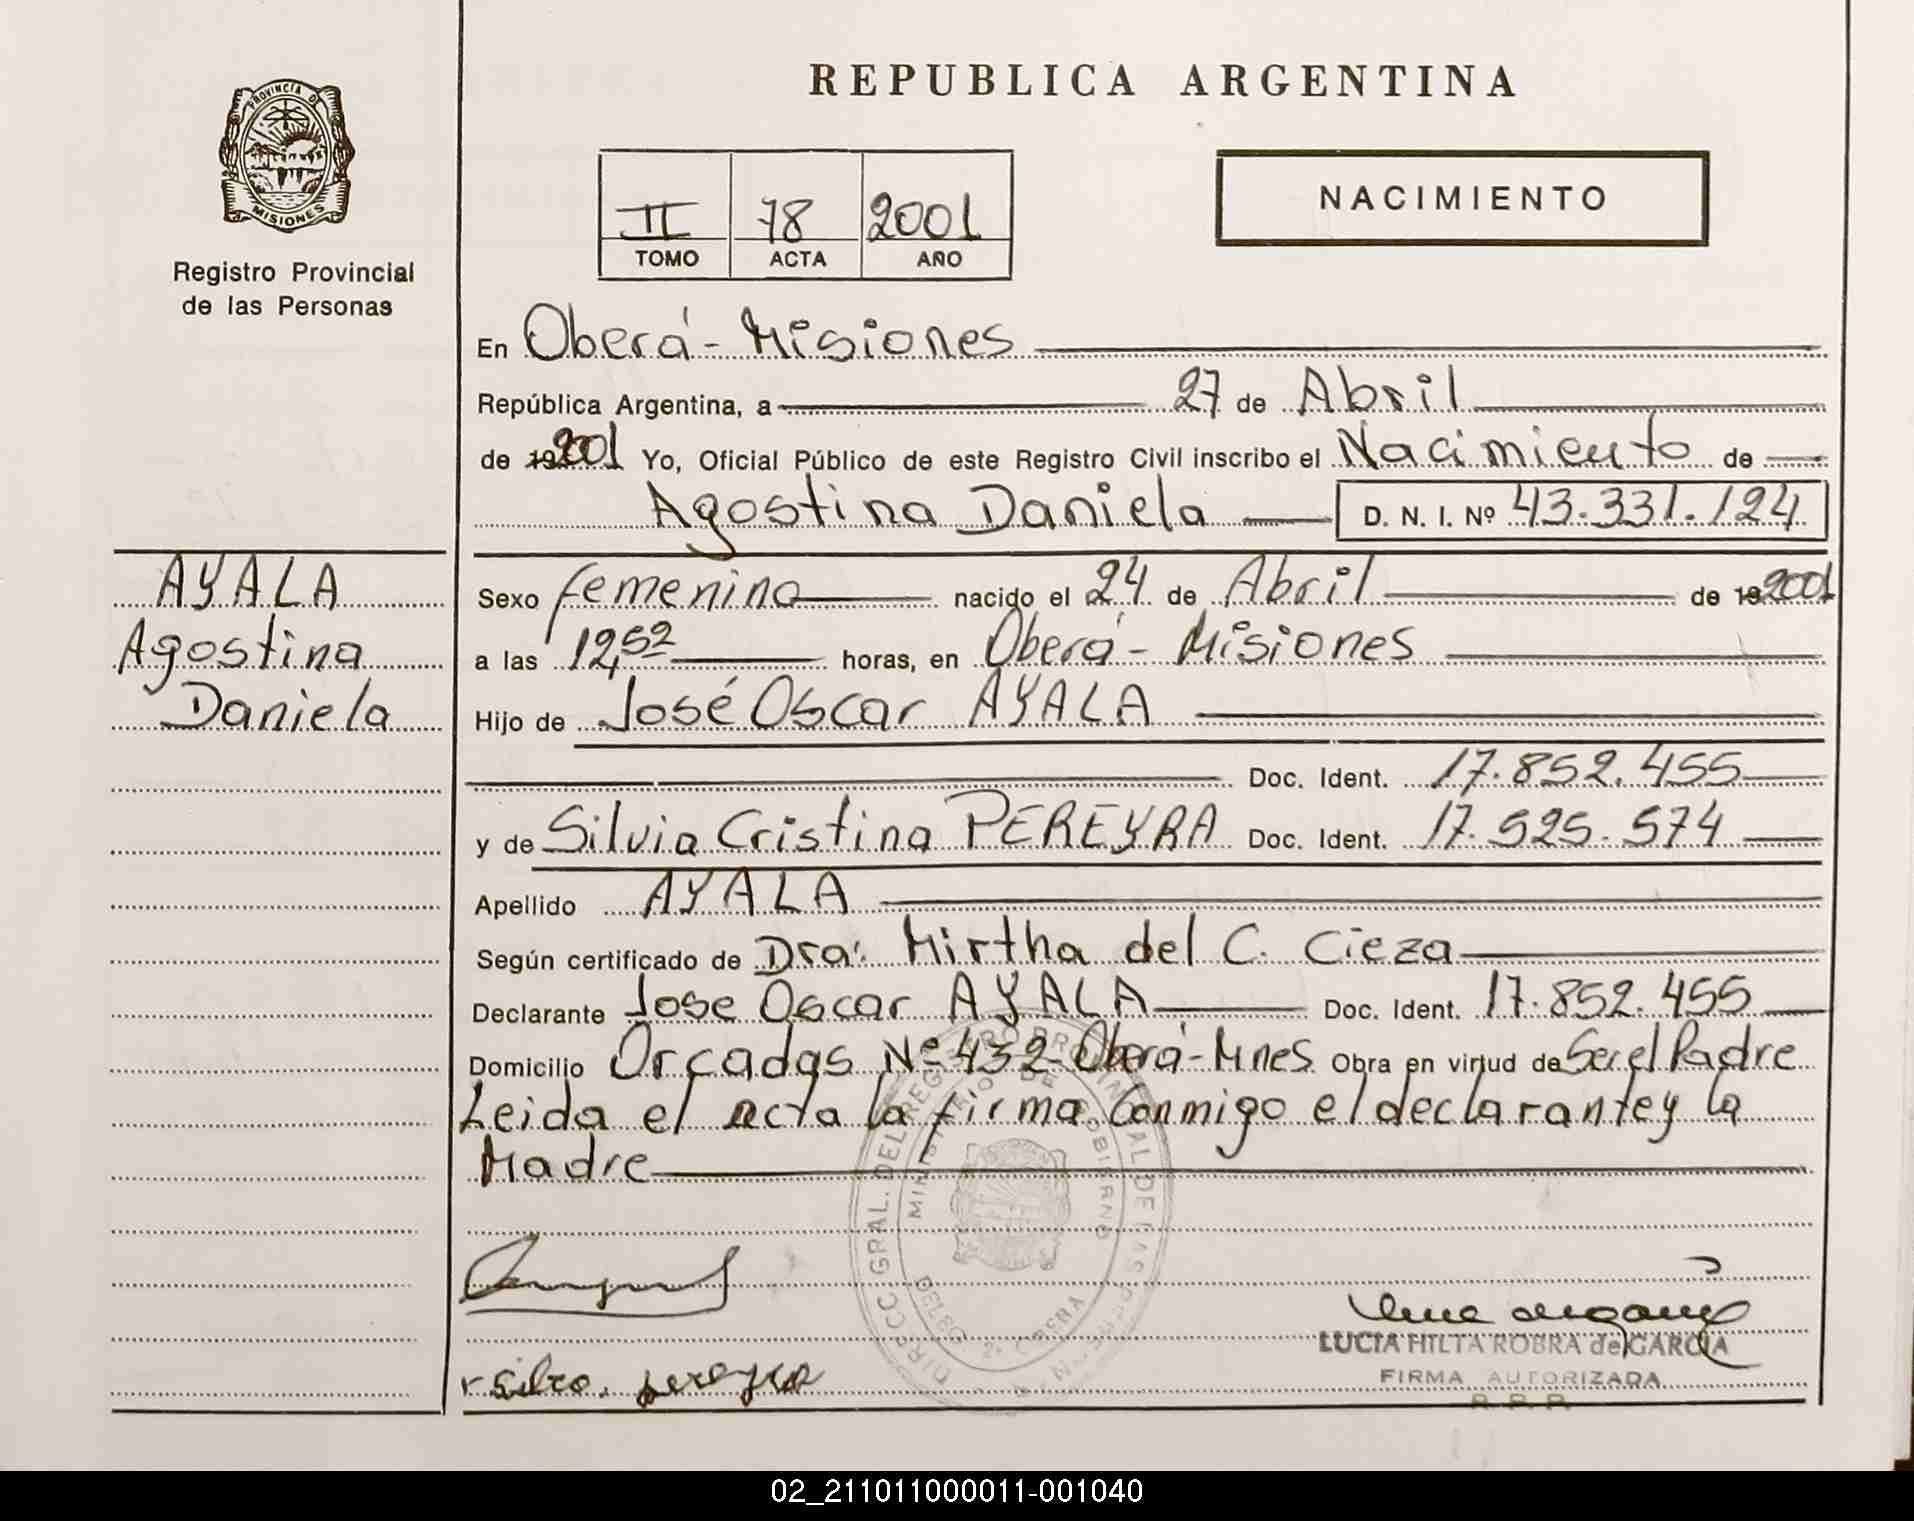 PROVINCIA DE
MISIONES
Registro Provincial
de las Personas
REPUBLICA ARGENTINA
II 78 2001
TOMO ACTA AÑO
NACIMIENTO
En Oberá - Misiones
República Argentina, a 27 de Abril
de 192001 Yo, Oficial Público de este Registro Civil inscribo el Nacimiento de
Agostina Daniela D. N. I. Nº 43.331.124
AYALA
Agostina
Daniela
Sexo femenino nacido el 24 de Abril de 192001
a las 12,52 horas, en Oberá - Misiones
Hijo de José Oscar AYALA
Doc. Ident. 17.852.455
y de Silvia Cristina PEREYRA Doc. Ident. 17.525.574
Apellido AYALA
Según certificado de Dra. Mirtha del C. Cieza
Declarante Jose Oscar AYALA Doc. Ident. 17.852.455
Domicilio Orcadas Nº 432 Oberá - Mnes Obra en virtud de Ser el Padre
Leida el acta la firma Conmigo el declarante y la
Madre
DIRECC. GRAL. DEL REGISTRO PROVINCIAL DE LAS PERSONAS
MINISTERIO DE GOBIERNO
silva. pereyra
LUCIA HILTA ROBRA de GARCIA
FIRMA AUTORIZADA
R. P. P.
02_211011000011-001040